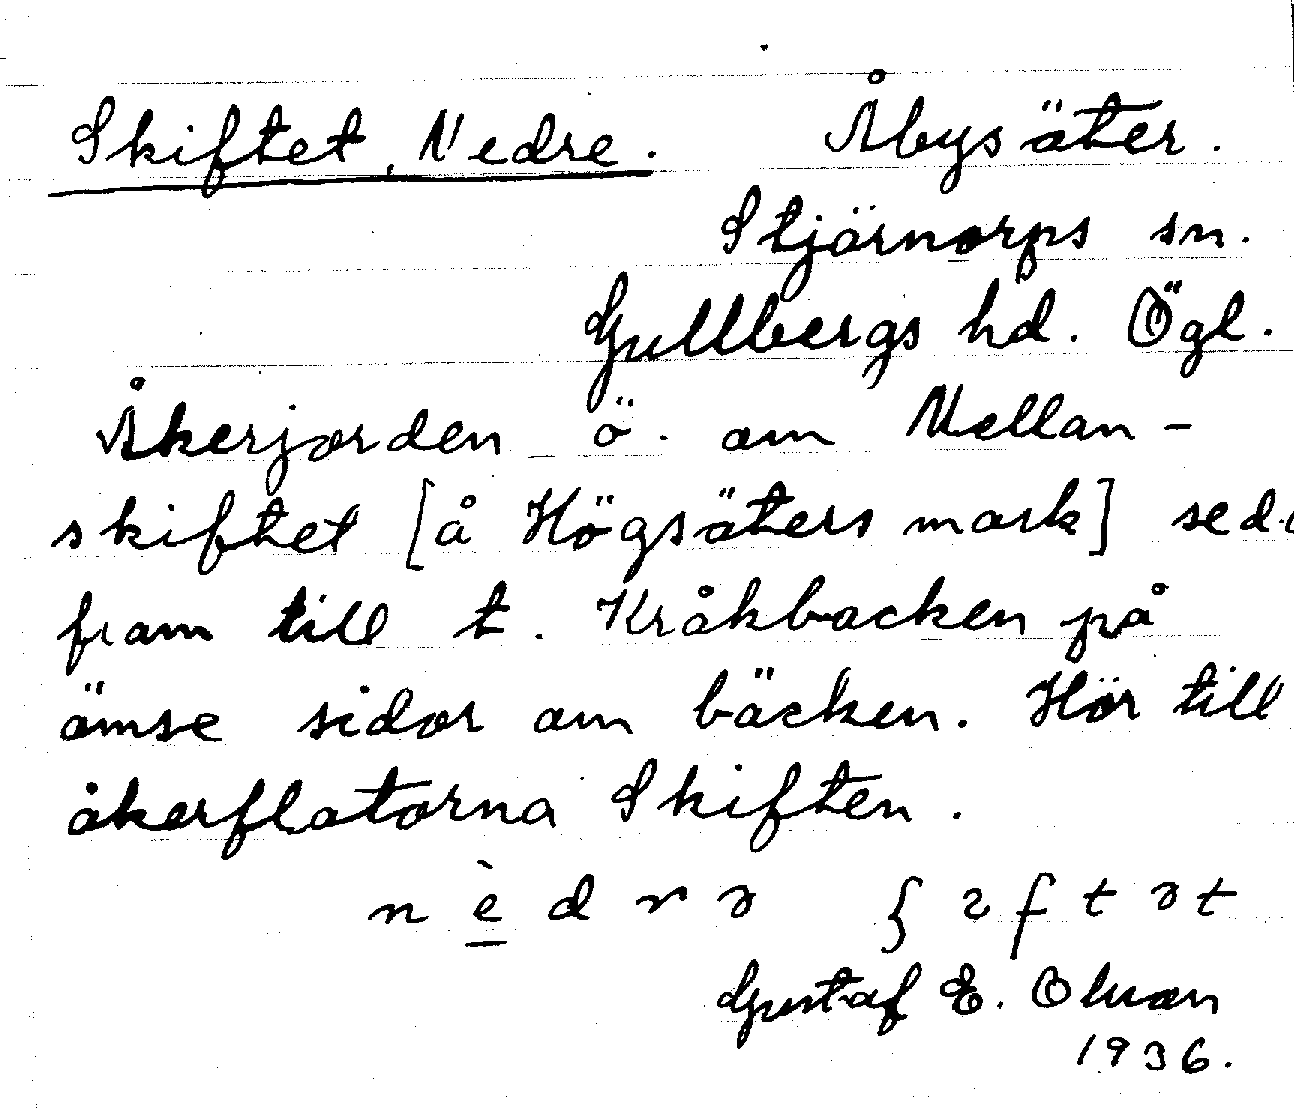 Skiftet, Nedre. Åbysäter.
Stjärnorps sn.
Gullbergs hd. Ögl.
Åkerjorden ö. om Mellan-
skiftet [å Högsäters mark] sed.
fram till t. Kråkbacken på
ömse sidor om bäcken. Hör till
åkerflatorna Skiften.
Gustaf E. Olsson
1936.